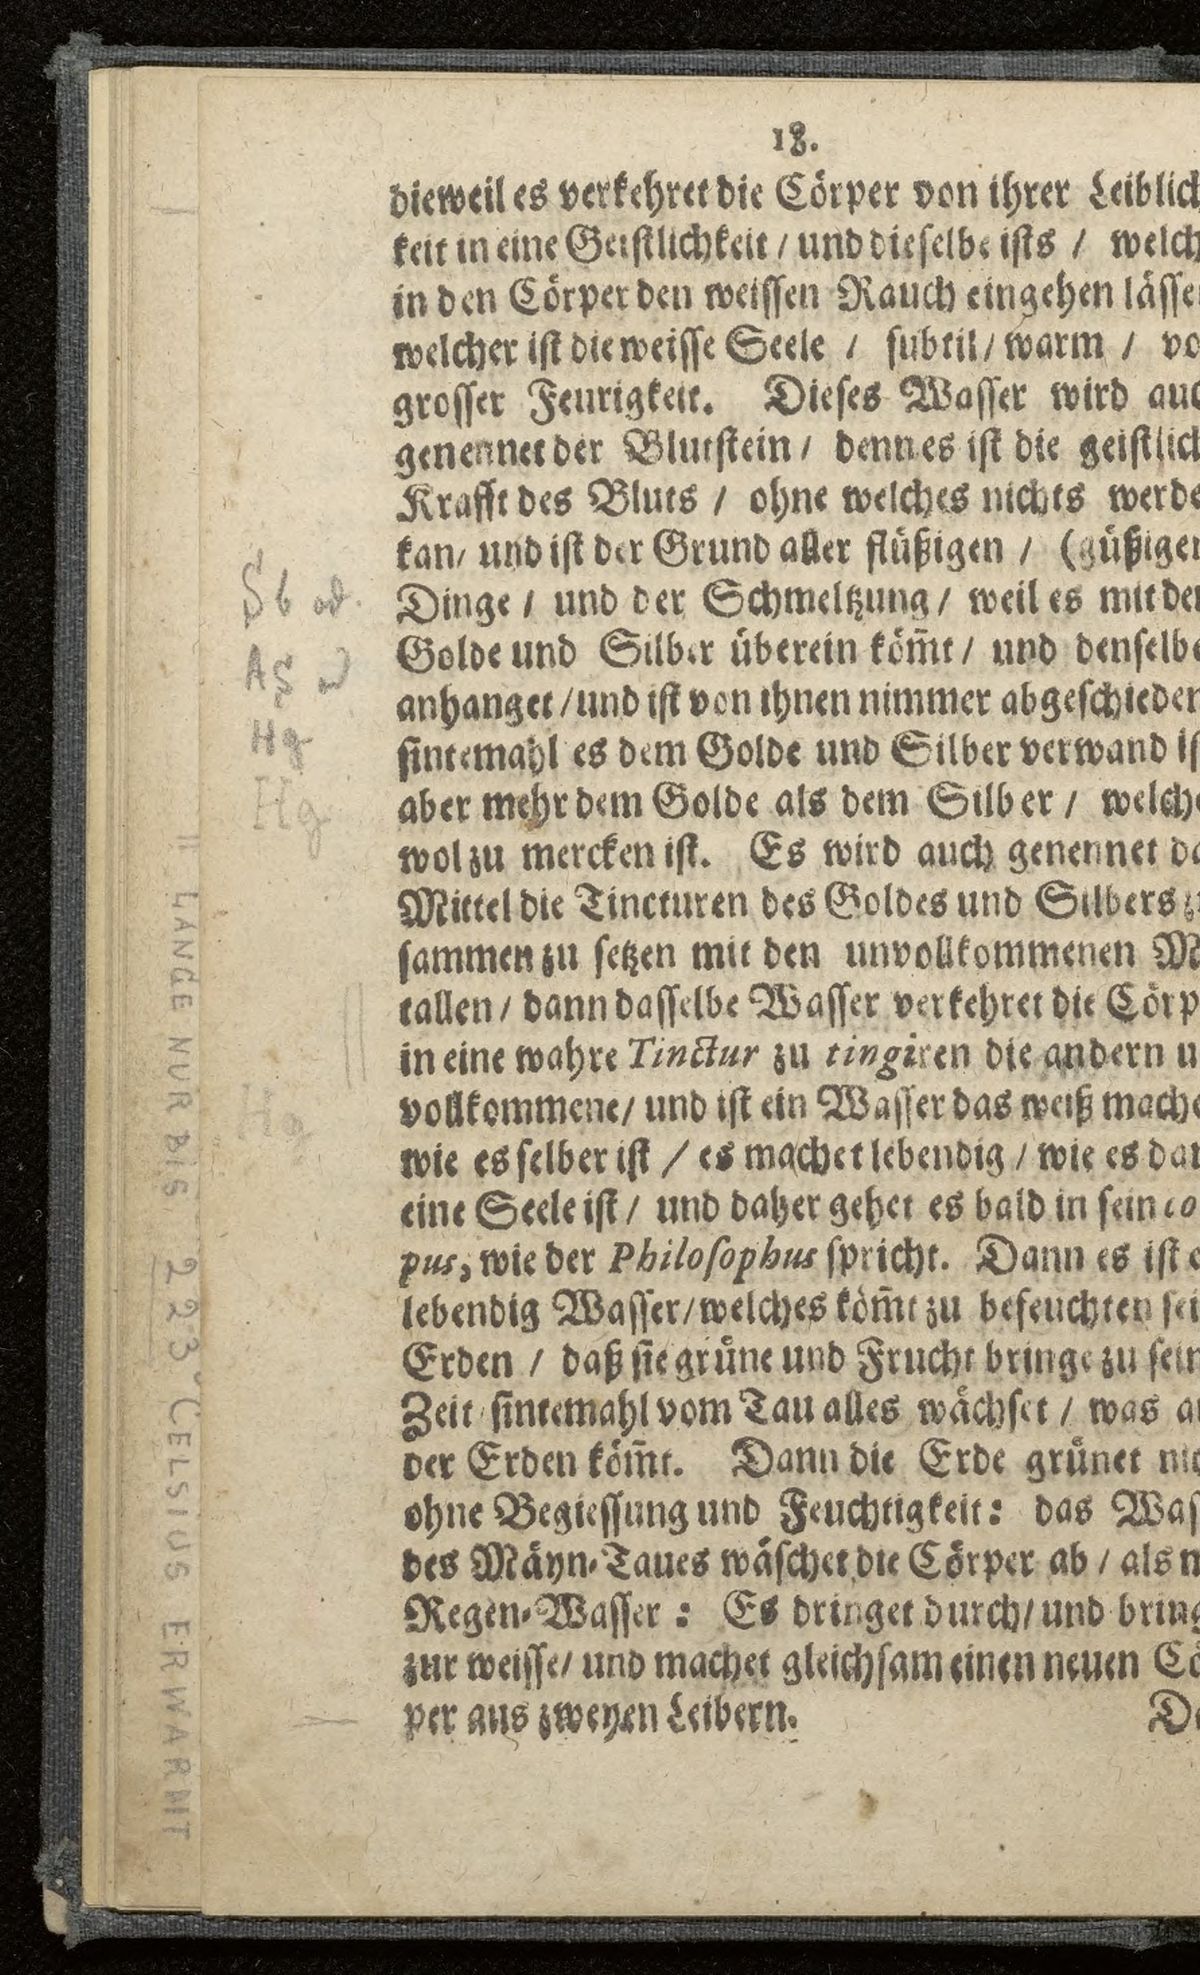 18.
dieweil es verkehret die Cörper von ihrer Leiblich
keit in eine Geistlichkeit / und dieselbe ists / welch
in den Cörper den weissen Rauch eingehen lässe
welcher ist die weisse Seele / subtil / warm / vo
grosser Feurigkeit. Dieses Wasser wird auc
genennet der Blutstein / denn es ist die geistlich
Krafft des Bluts / ohne welches nichts werde
kan / und ist der Grund aller flüßigen / (güßigen
Dinge / und der Schmeltzung / weil es mit der
Golde und Silber überein köm̃t / und denselbe
anhanget / und ist von ihnen nimmer abgeschieden
sintemahl es dem Golde und Silber verwand is
aber mehr dem Golde als dem Silber / welche
wol zu mercken ist. Es wird auch genennet da
Mittel die Tincturen des Goldes und Silbers zu
sammen zu setzen mit den unvollkommenen Me
tallen / dann dasselbe Wasser verkehret die Cörp
in eine wahre Tinctur zu tingiren die andern u
vollkommene / und ist ein Wasser das weiß mache
wie es selber ist / es machet lebendig / wie es dan
eine Seele ist / und daher gehet es bald in sein co
pus, wie der Philosophus spricht. Dann es ist e
lebendig Wasser / welches köm̃t zu befeuchten sei
Erden / daß sie grüne und Frucht bringe zu sein
Zeit sintemahl vom Tau alles wächset / was au
der Erden köm̃t. Dann die Erde grünet nic
ohne Begiessung und Feuchtigkeit: das Was
des Mäyn-Taues wäschet die Cörper ab / als m
Regen-Wasser: Es dringet durch / und bring
zur weisse / und machet gleichsam einen neuen Cö
per aus zweyen Leibern.
De
Sb od.
AS od
Hg
Hg
Hg
LANGE NUR BIS 223° CELSIUS ERWÄRMT